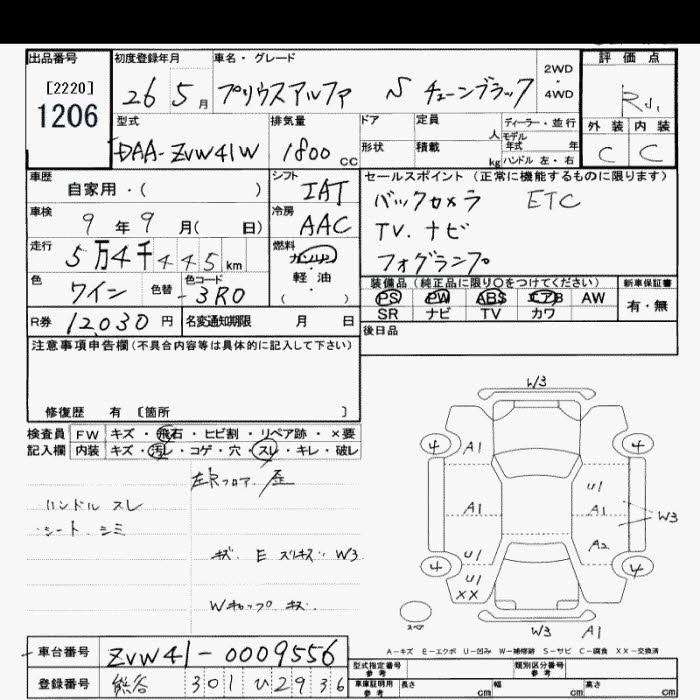 出品番号 初度登録年月 車名・グレード 2WD・4WD 評価点
[2220] 1206 26 5月 プリウスアルファ S チューンブラック
型式 排気量 ドア 定員 人 ディーラー・並行 外装 内装
DAA-ZVW41W 1800cc 形状 積載 kg モデル年式 年 ハンドル 左・右 C C
車歴 自家用・( ) シフト IAT セールスポイント(正常に機能するものに限ります)
車検 9年9月( 日) 冷房 AAC バックカメラ ETC
TV.ナビ
走行 5万4千445km 燃料 ガソリン・軽油 ( ) フォグランプ
色 ワイン 色替 色コード 3R0 装備品(純正品に限り○をつけてください) 新車保証書
PS PW ABS エアB AW 有・無
SR ナビ TV カワ
R券 12,030円 名変通知期限 月 日 後日品
注意事項申告欄(不具合内容等は具体的に記入して下さい)
修復歴 有 〔箇所 〕
検査員 FW キズ・飛石・ヒビ割・リペア跡・×要
記入欄 内装 キズ・汚レ・コゲ・穴・スレ・キレ・破レ
ハンドル スレ
シート シミ
W3
Wキャップ キズ
W3
4 A1 4
U1
A1 A1 W3
A2
4 U1 4
U1
XX
スペア
W3 A1
A-キズ E-エクボ U-凹み W-補修跡 S-サビ C-腐食 XX-交換済
車台番号 ZVW41-0009556
登録番号 熊谷 301 ひ2936
型式指定番号 参考 類別区分番号 参考
車庫証明用 参考 長さ cm 幅 cm 高さ cm